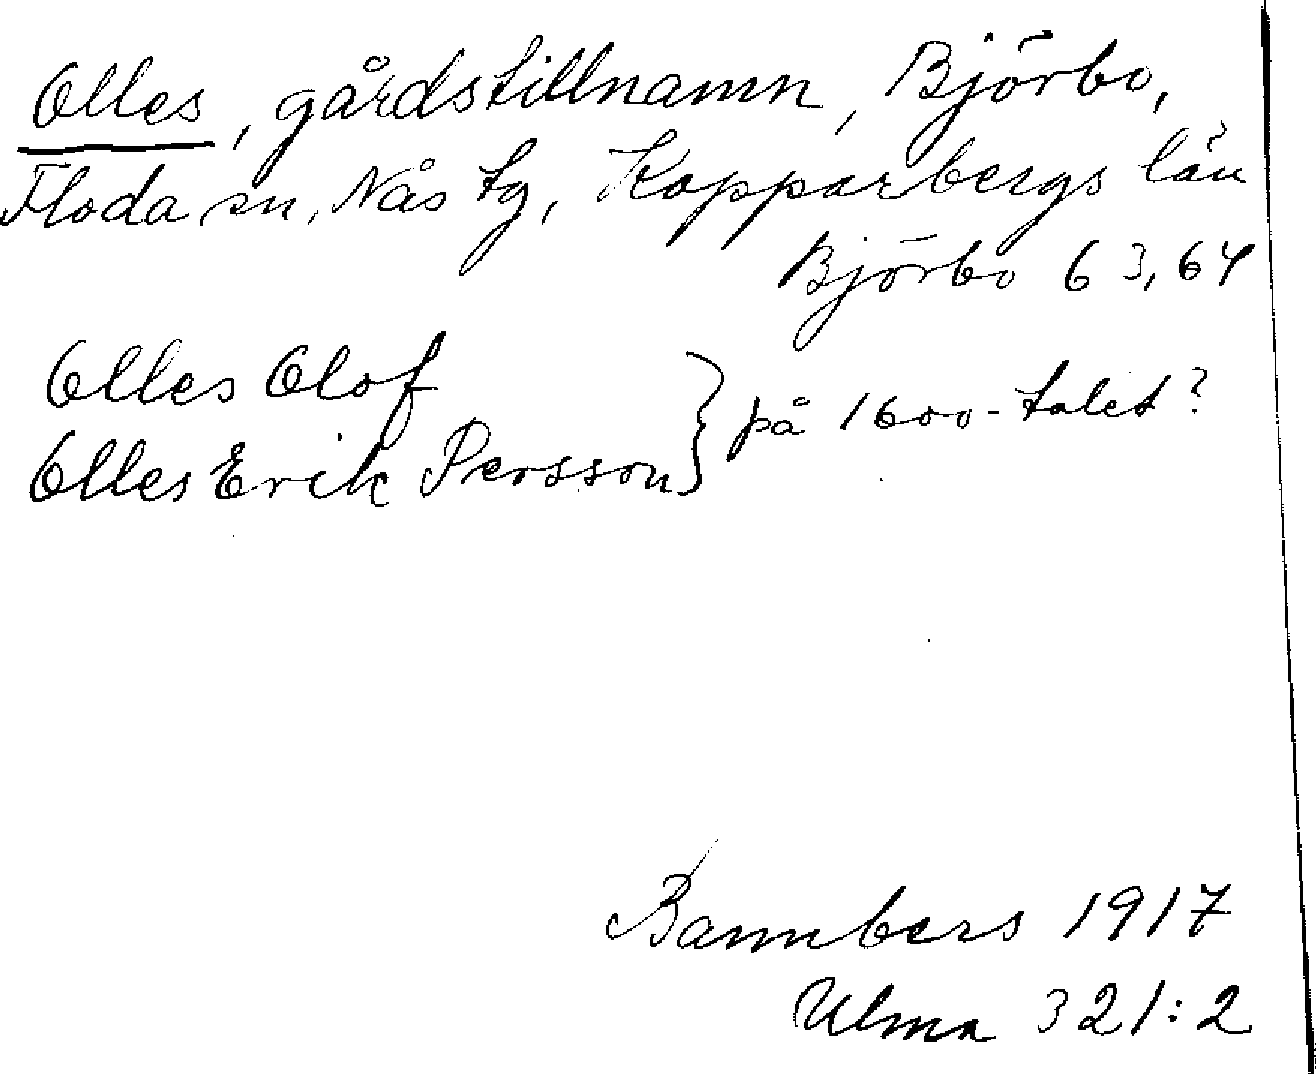 Olles, gårdstillnamn, Björbo,
Floda sn, Nås tg, Kopparbergs län
Björbo 63, 64
Olles Olof
Olles Erik Persson } på 1600-talet?
Bannbers 1917
Ulma 321:2